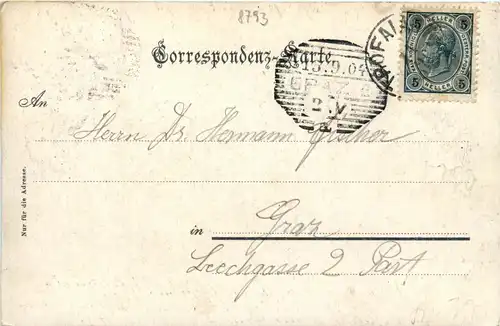 8793
Correspondenz-Karte
TROFAI
5 HELLER 5
5 HELLER 5
13.9.04
GRAZ
2.V
An
Herrn Dr. Hermann Fischer
in Graz
Leechgasse 2 Part
Nur für die Adresse.